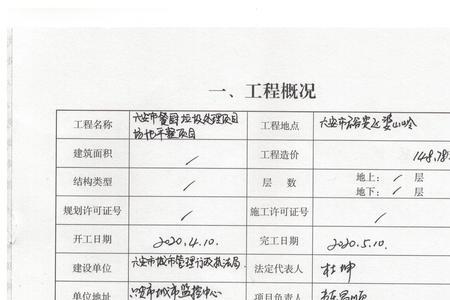 一、工程概况
工程名称 六安市餐厨垃圾处理项目
场地平整项目 工程地点 六安市
建筑面积 / 工程造价 148.78
结构类型 / 层 数 地上: / 层
地下: / 层
规划许可证号 / 施工许可证号 /
开工日期 2020.4.10. 完工日期 2020.5.10.
建设单位 六安市城市管理行政执法局 法定代表人 杜坤
单位地址 六安市城市监控中心 项目负责人